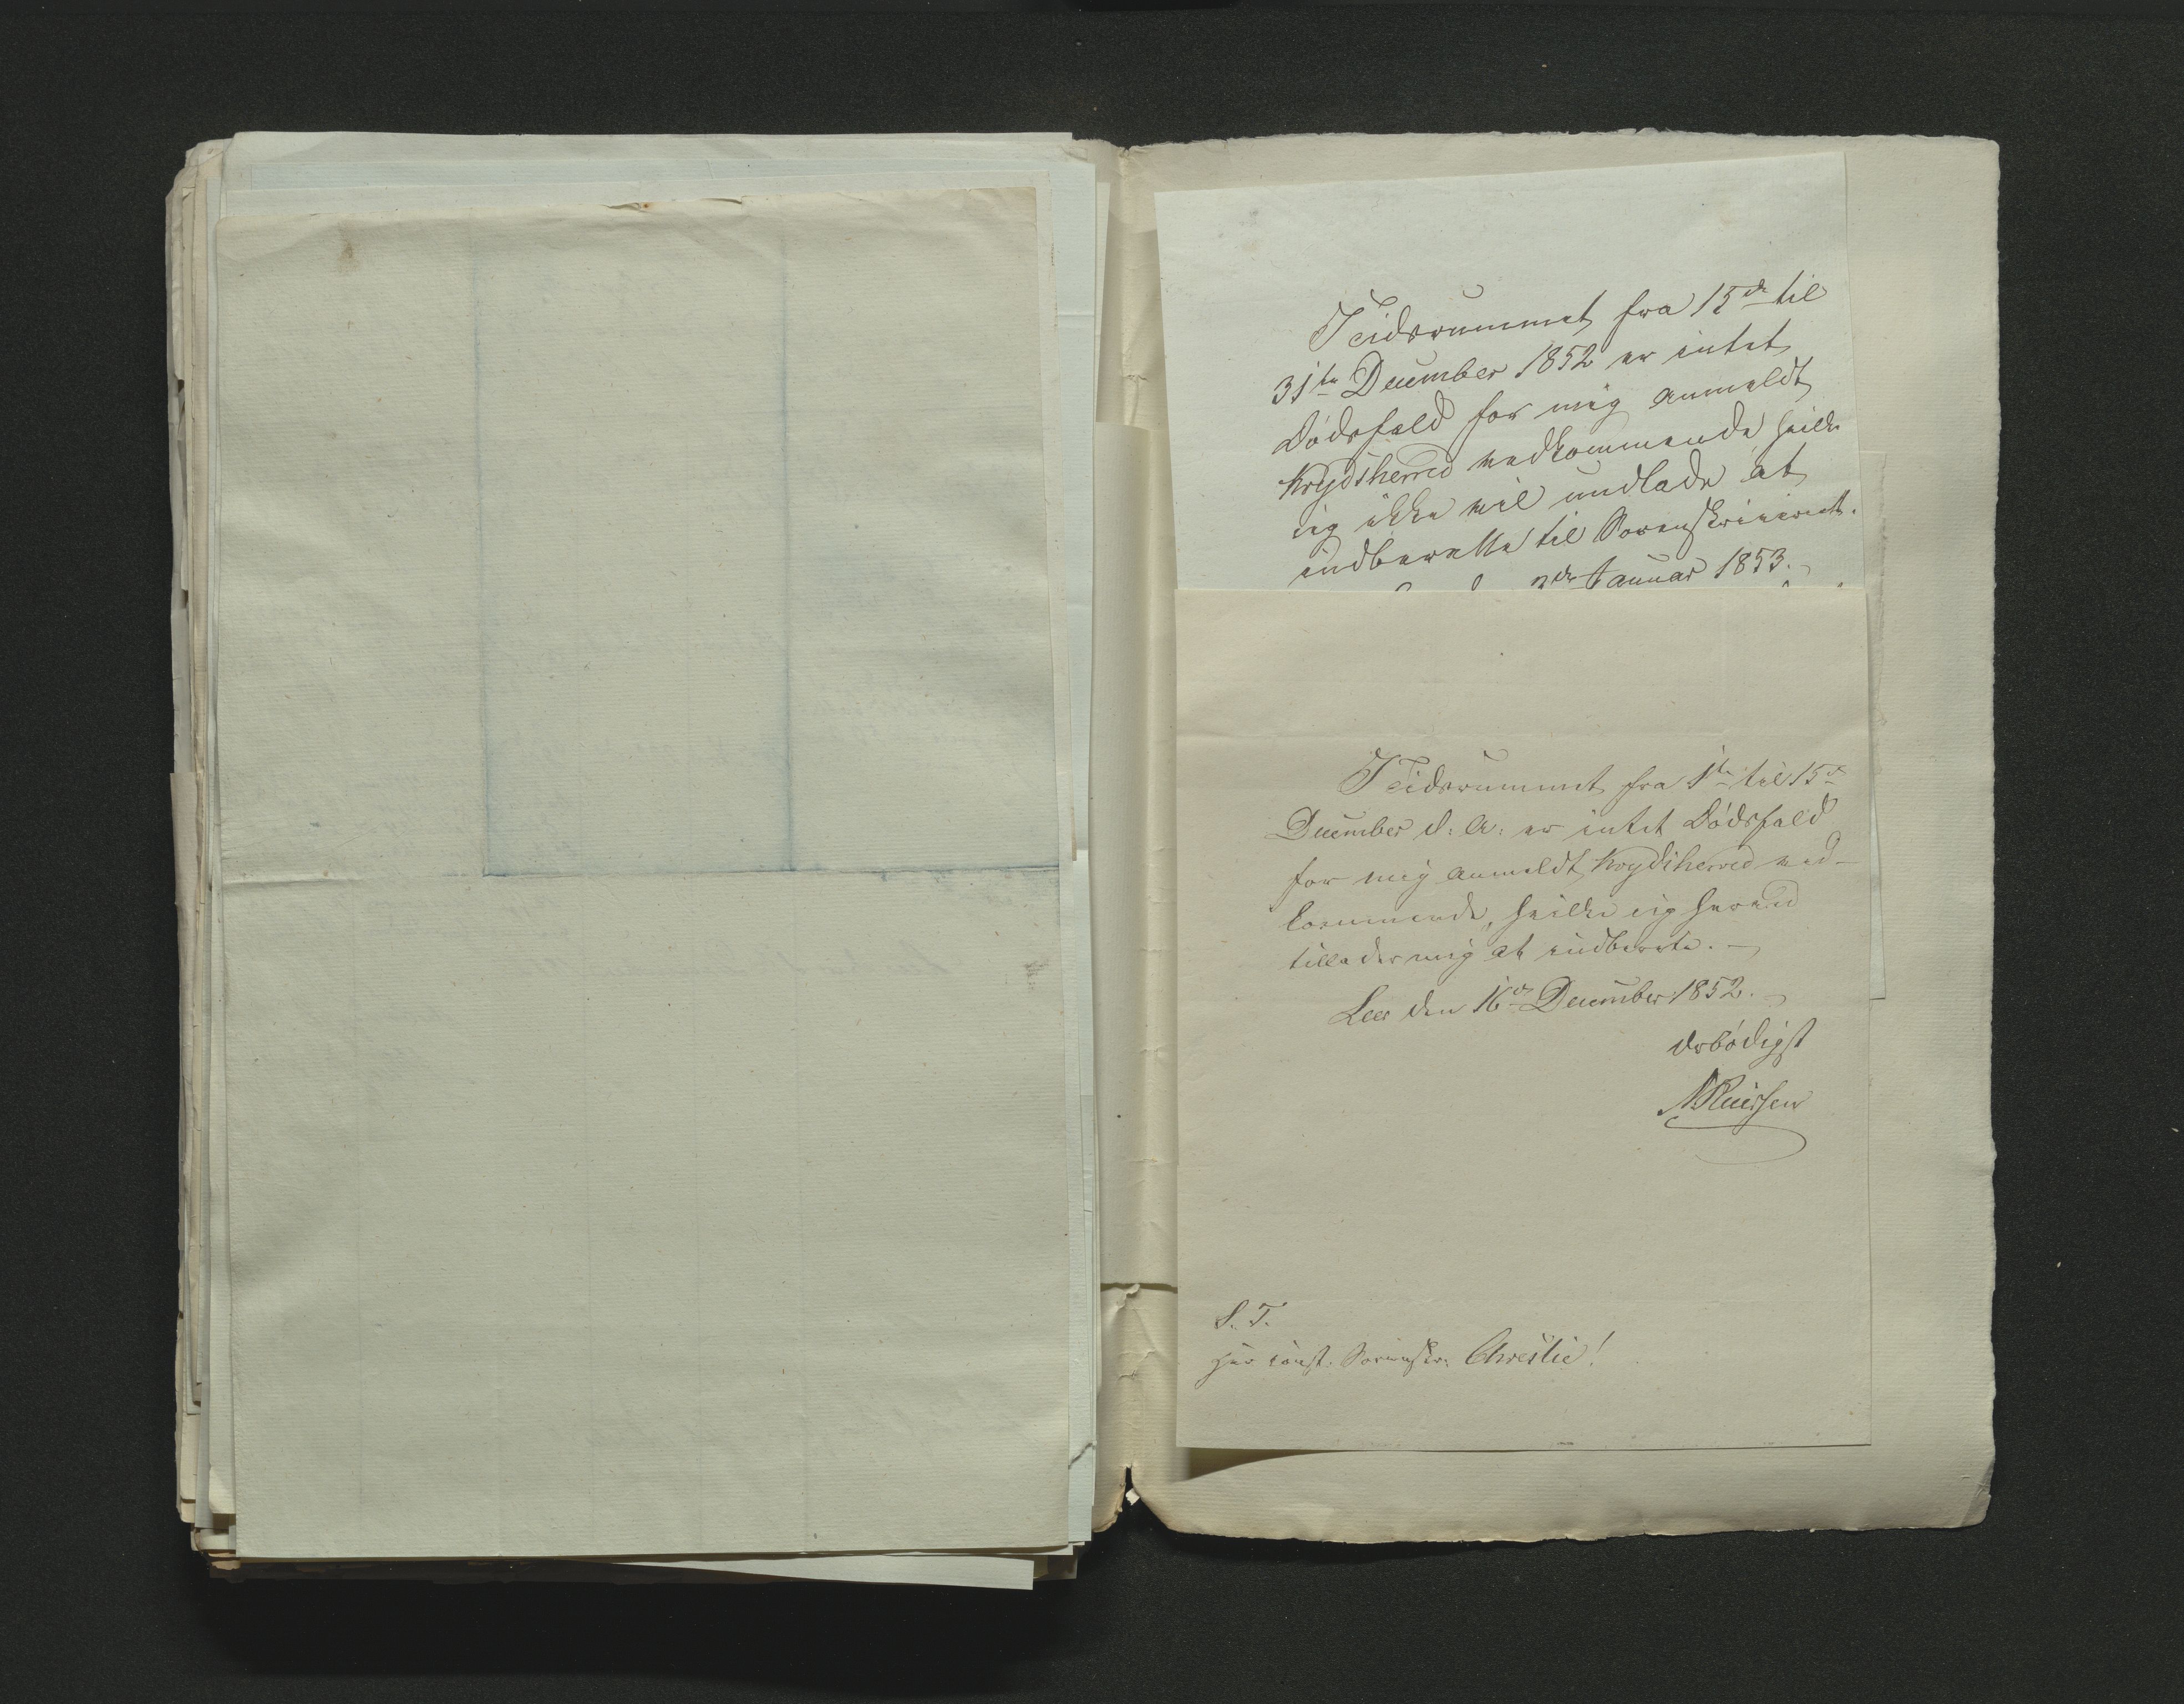 I Tidsrummet fra 15de til
31te December 1852 er intet
Dødsfald for mig anmeldt
Krydsherred vedkommende hvilket
jeg ikke vil undlade at
indberette til Sorenskriveriet.
3de Januar 1853.
I Tidsrummet fra 1te til 15de
December d: A: er intet Dødsfald
for mig anmeldt Krydsherred ved-
kommende, hvilket jeg herved
tillader mig at indberette. —
Lee den 16de December 1852. —
Ærbødigst
S. T.
Hrr const. Sorenskr: Christie!